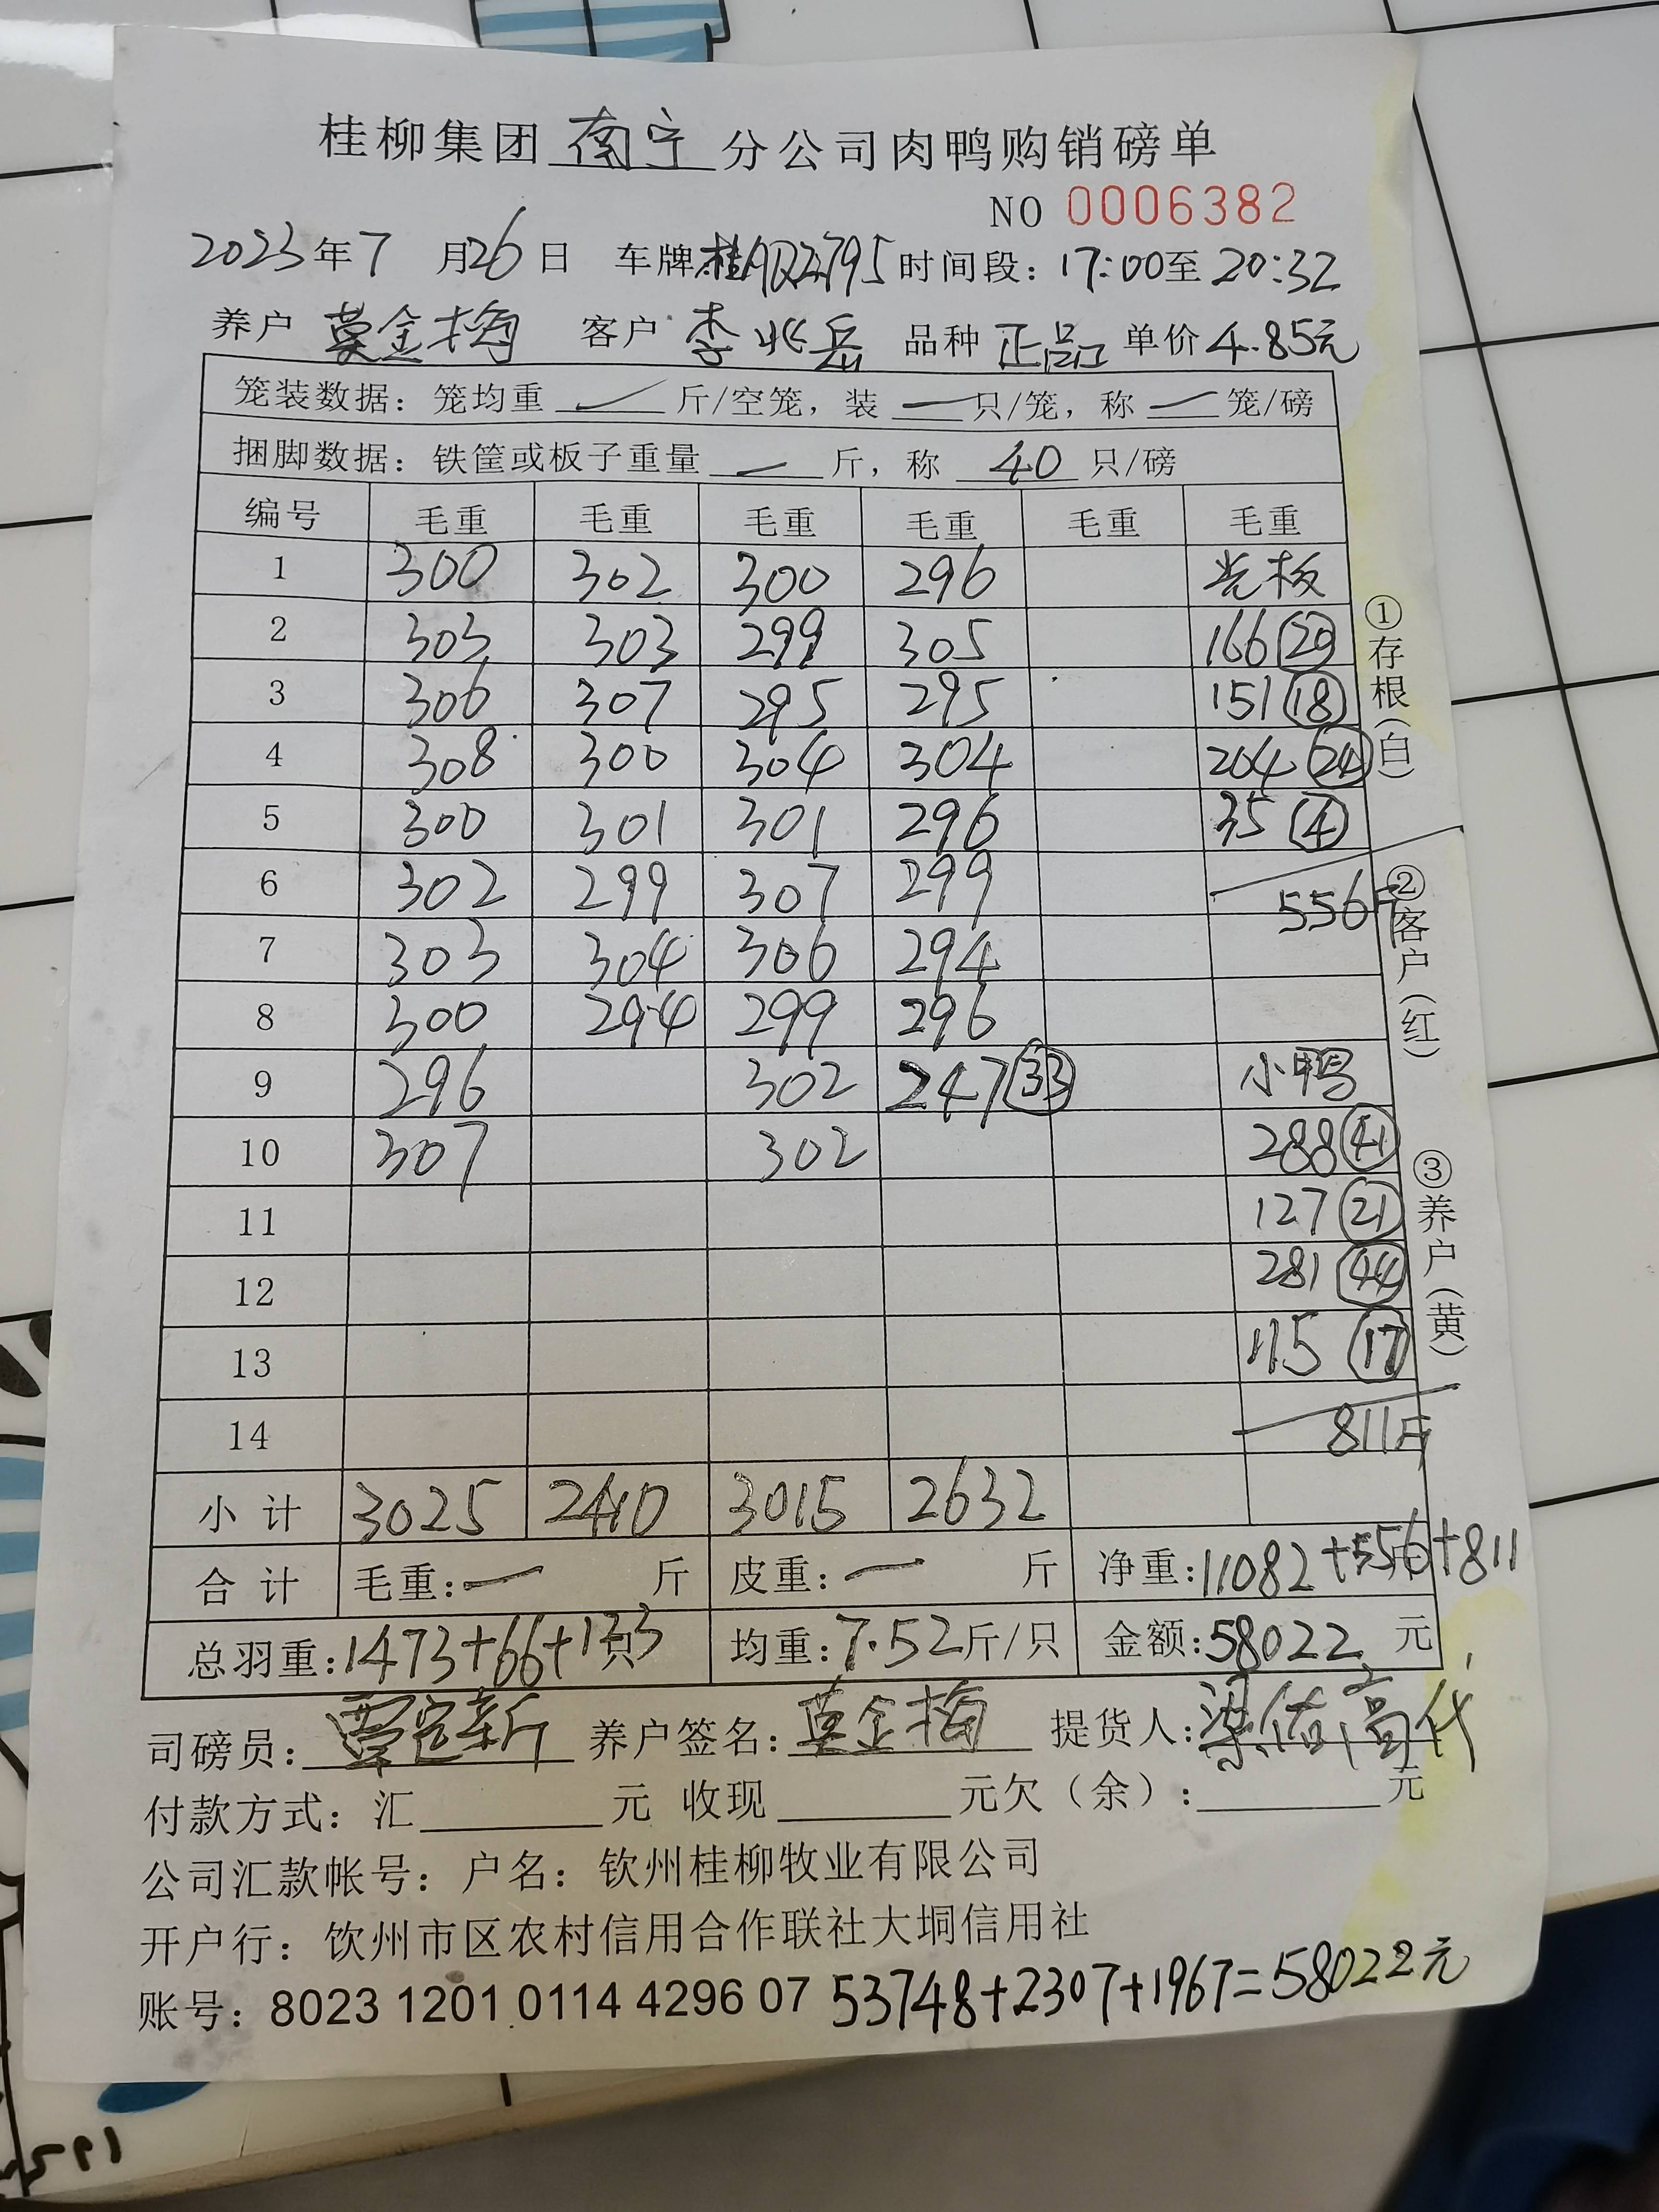 桂柳集团 南宁 分公司肉鸭购销磅单
NO 0006382
2023年7月26日 车牌: 桂 2795 时间段: 17:00至20:32
养户 莫金梅 客户 李兆岳 品种 正品 单价 4.85元
笼装数据: 笼均重 斤/空笼, 装 一 只/笼, 称 一 笼/磅
捆脚数据: 铁筐或板子重量 一 斤, 称 40 只/磅
编号 毛重 毛重 毛重 毛重 毛重 毛重
1 300 302 300 296 光板
2 303 303 299 305 166 29
3 306 307 295 295 151 18
4 308 300 304 304 204 24
5 300 301 301 296 35 4
6 302 299 307 299 556斤
7 303 304 306 294
8 300 294 299 296
9 296 302 247 33 小鸭
10 307 302 288 41
11 127 21
12 281 44
13 115 17
14 811斤
小计 3025 2410 3015 2632
合计 毛重:一 斤 皮重:一 斤 净重:11082+556+811
总羽重:1473+66+133 只 均重:7.52斤/只 金额:58022 元
司磅员: 覃定新 养户签名: 莫金梅 提货人: 梁佑高代
付款方式: 汇 元 收现 元欠(余): 元
公司汇款帐号: 户名: 钦州桂柳牧业有限公司
开户行: 钦州市区农村信用合作联社大垌信用社
账号: 8023 1201 0114 4296 07 53748+2307+1967=58022元
①存根(白)
②客户(红)
③养户(黄)